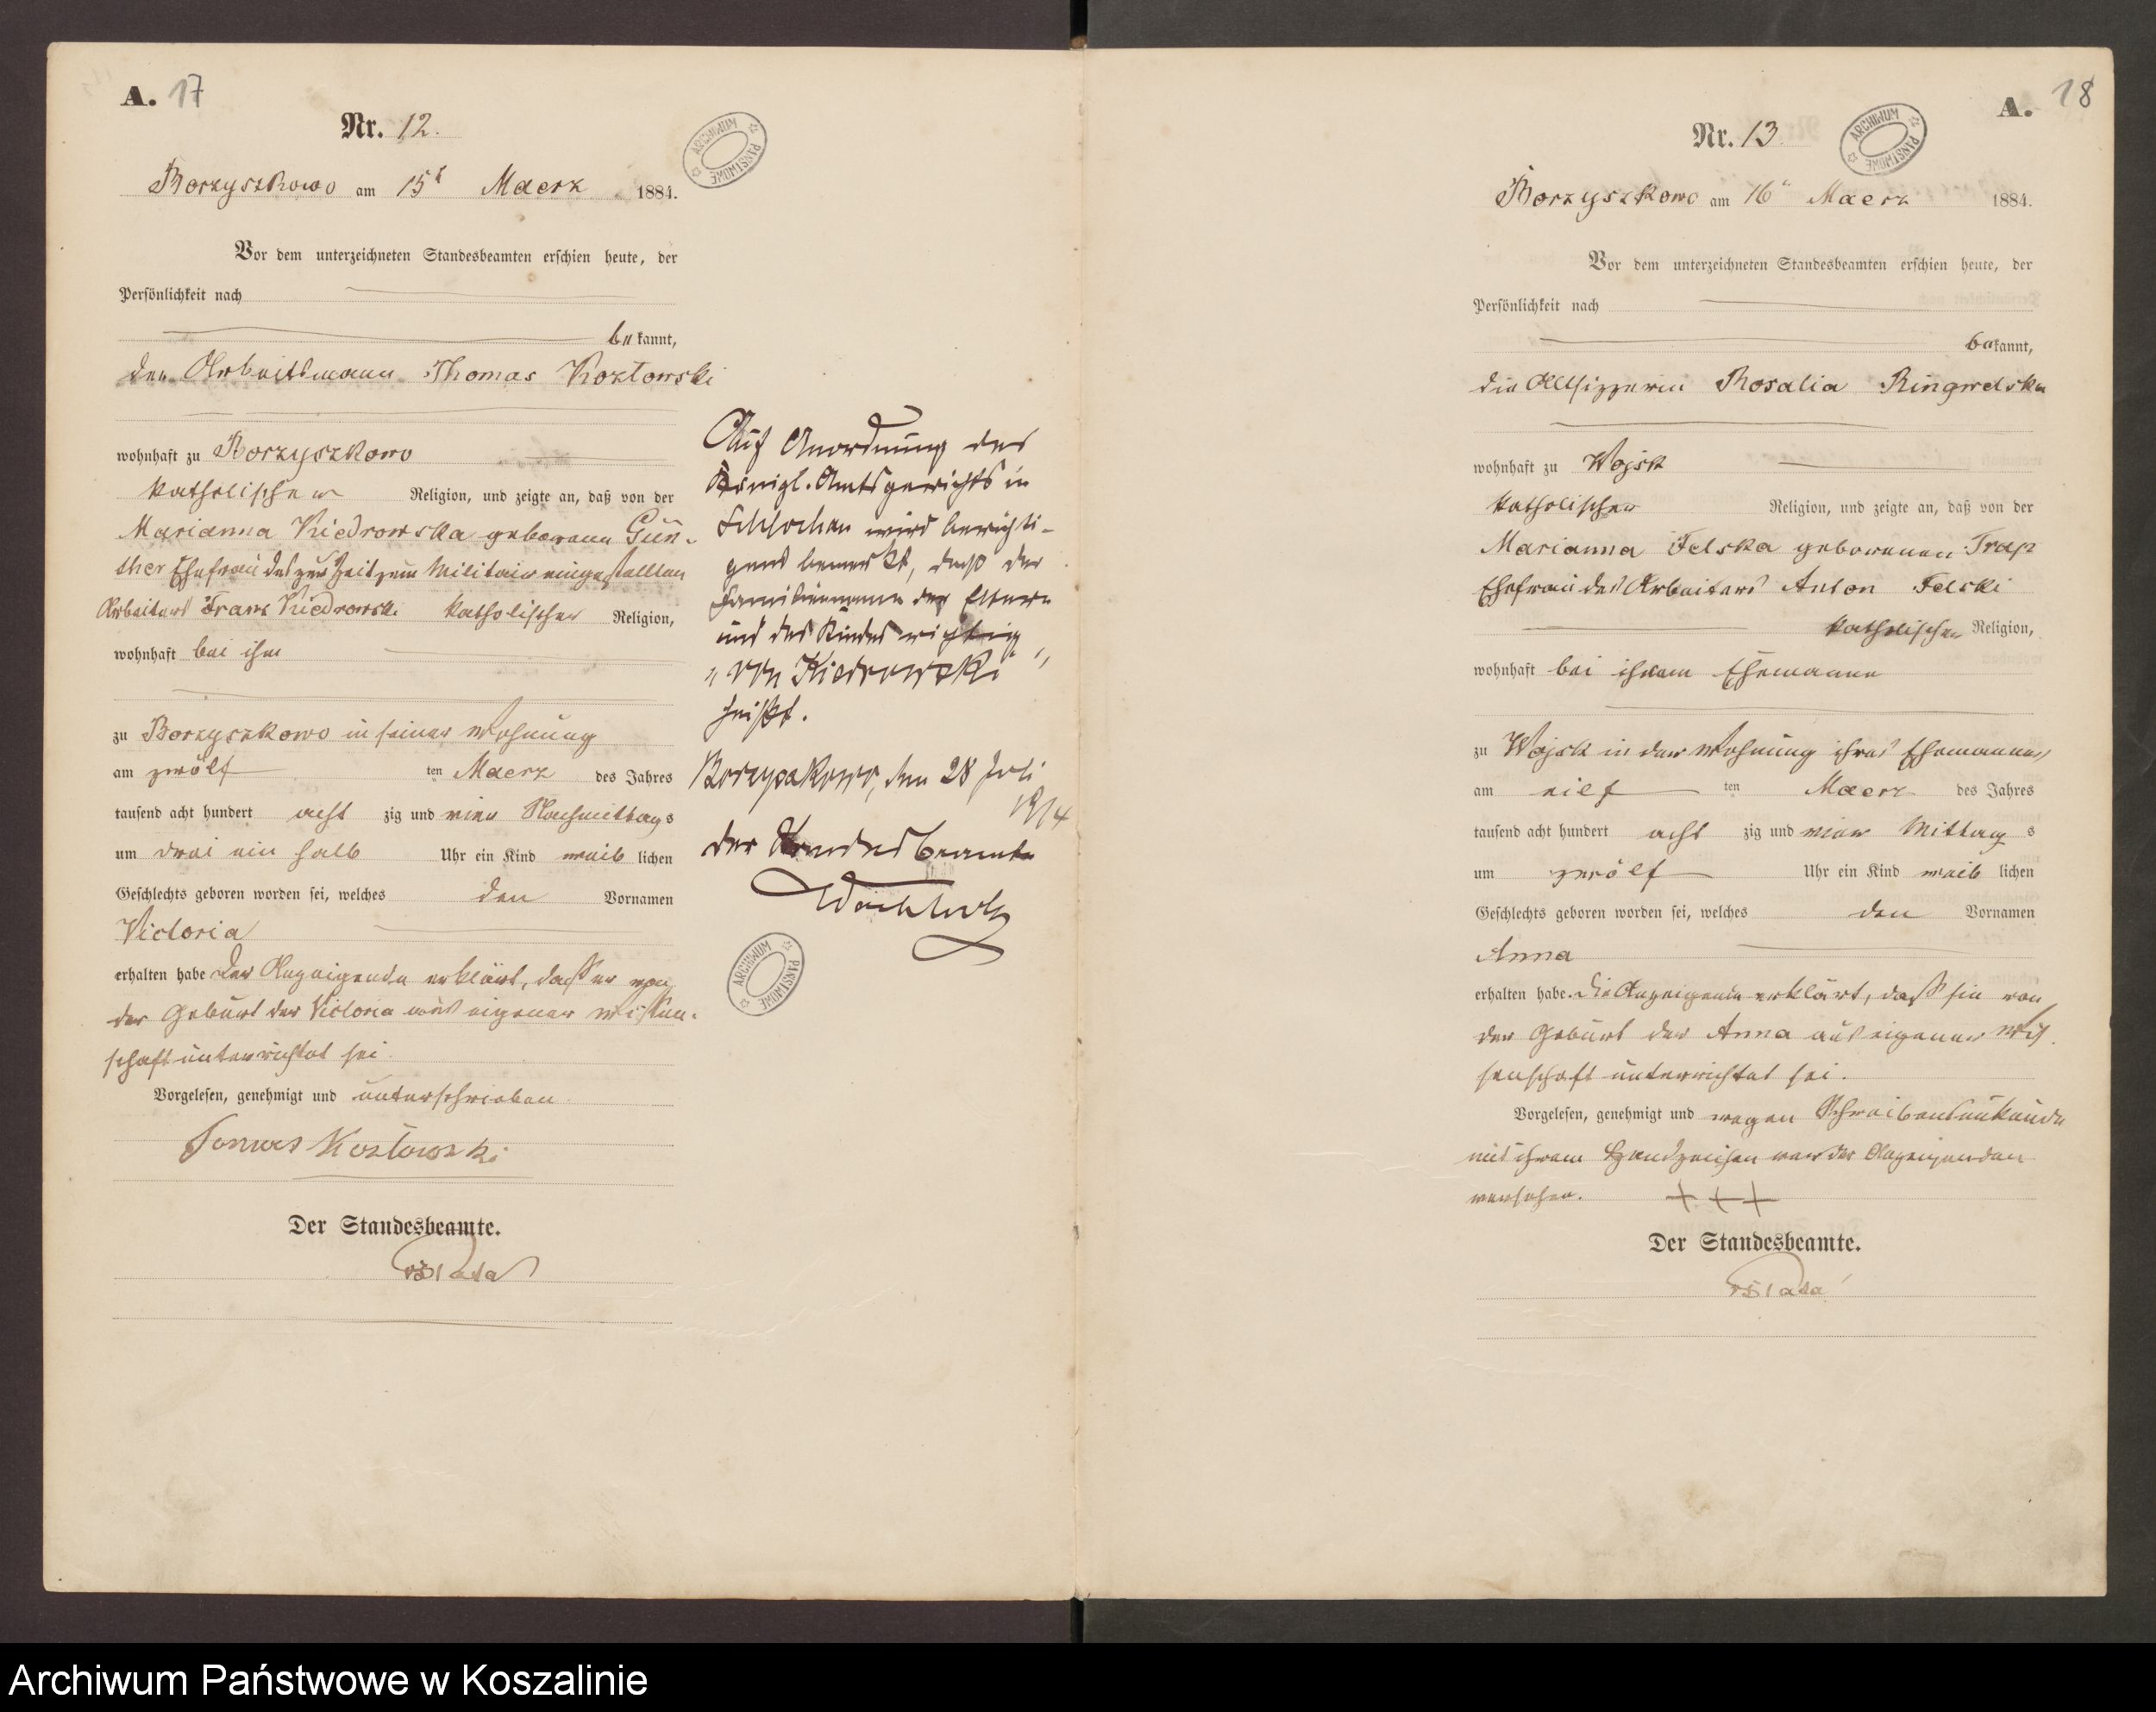 A. 17
Nr. 12.
ARCHIWUM PAŃSTWOWE
Borzyszkowo am 15t Maerz 1884.
Vor dem unterzeichneten Standesbeamten erschien heute, der
Persönlichkeit nach
bekannt,
der Arbeitsmann Thomas Kozłowski
wohnhaft zu Borzyszkowo
katholischer Religion, und zeigte an, daß von der
Marianna Kiedrowska geborene Gün-
ther Ehefrau des zur Zeit zum Militair eingestellten
Arbeiters Franz Kiedrowski katholischer Religion,
wohnhaft bei ihm
zu Borzyszkowo in seiner Wohnung
am zwölf ten Maerz des Jahres
tausend acht hundert acht zig und vier Nachmittags
um drei ein halb Uhr ein Kind weib lichen
Geschlechts geboren worden sei, welches den Vornamen
Victoria
erhalten habe Der Anzeigende erklärt, daß er von
der Geburt der Victoria aus eigener Wissen-
schaft unterrichtet sei.
Vorgelesen, genehmigt und unterschrieben.
Tomas Kozłowski
Der Standesbeamte.
Auf Anordnung des
Königl. Amtsgerichts in
Schlochau wird berichti-
gend bemerkt, daß der
Familienname der Eltern
und des Kindes richtig
„von Kiedrowski“
heißt.
Borzyszkowo, den 28 Juli
1914
Der Standesbeamte
ARCHIWUM PAŃSTWOWE
A. 18
Nr. 13.
ARCHIWUM PAŃSTWOWE
Borzyszkowo am 16t Maerz 1884.
Vor dem unterzeichneten Standesbeamten erschien heute, der
Persönlichkeit nach
bekannt,
die Altsitzerin Rosalia Ringwelska
wohnhaft zu Wojsk
katholischer Religion, und zeigte an, daß von der
Marianna Felska geborenen Trap
Ehefrau des Arbeiters Anton Felski
katholischer Religion,
wohnhaft bei ihrem Ehemanne
zu Wojsk in der Wohnung ihres Ehemannes
am eilf ten Maerz des Jahres
tausend acht hundert acht zig und vier Mittag s
um zwölf Uhr ein Kind weib lichen
Geschlechts geboren worden sei, welches den Vornamen
Anna
erhalten habe. Die Anzeigende erklärt, daß sie von
der Geburt der Anna aus eigener Wis
senschaft unterrichtet sei.
Vorgelesen, genehmigt und wegen Schreibensunkunde
mit ihrem Handzeichen von der Anzeigenden
versehen. + + +
Der Standesbeamte.
Archiwum Państwowe w Koszalinie